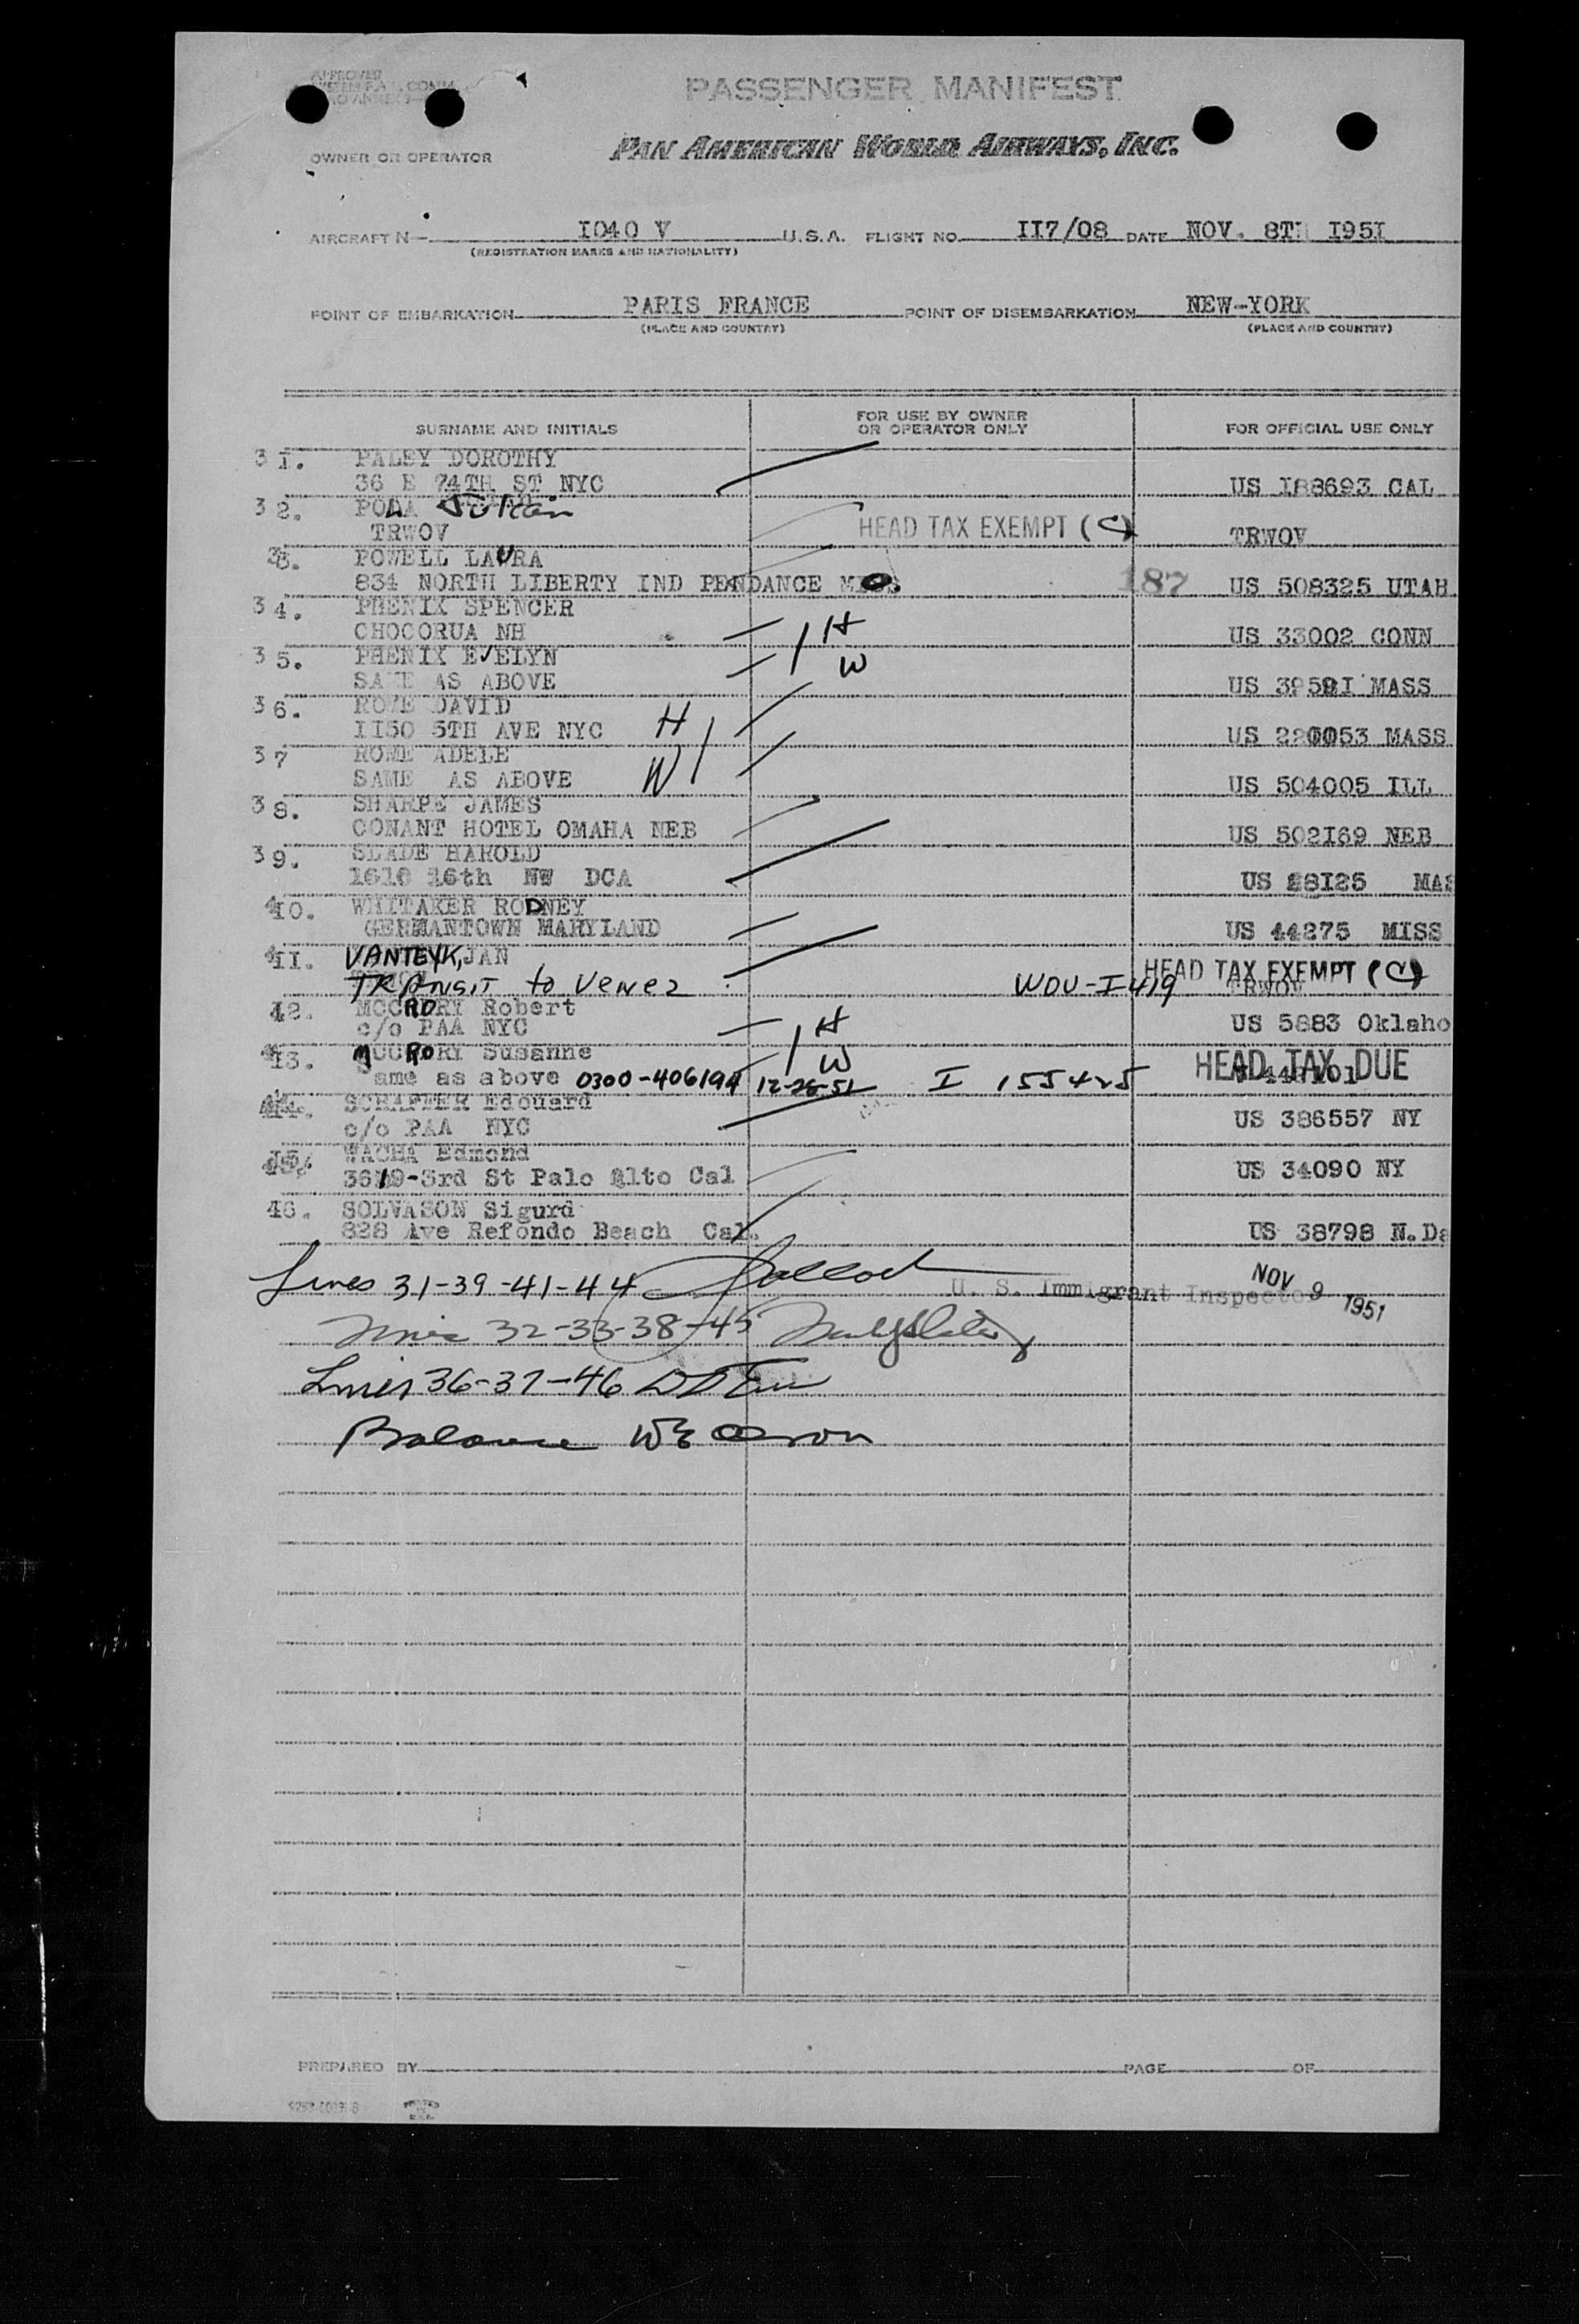 APPROVED
PASSENGER MANIFEST
OWNER OR OPERATOR PAN AMERICAN WORLD AIRWAYS, INC.
AIRCRAFT N- I040 V U.S.A. FLIGHT NO. II7/08 DATE NOV. 8TH I95I
(REGISTRATION MARKS AND NATIONALITY)
POINT OF EMBARKATION PARIS FRANCE POINT OF DISEMBARKATION NEW-YORK
(PLACE AND COUNTRY) (PLACE AND COUNTRY)
SURNAME AND INITIALS FOR USE BY OWNER OR OPERATOR ONLY FOR OFFICIAL USE ONLY
31. PALEY DOROTHY
36 E 74TH ST NYC US I88693 CAL
32. Julian
TRWOV HEAD TAX EXEMPT (C) TRWOV
33. POWELL LAURA
834 NORTH LIBERTY IND PENDANCE MO. 187 US 508325 UTAH
34. PHENIX SPENCER
CHOCORUA NH H US 33002 CONN
35. PHENIX EVELYN
SAME AS ABOVE W US MASS
36. ROWE DAVID
II50 5TH AVE NYC H US MASS
37 ROWE ADELE
SAME AS ABOVE W US 504005 ILL
38. SHARPE JAMES
CONANT HOTEL OMAHA NEB US 502I69 NEB
39. SLADE HAROLD
16th NW DCA US MAS
40. WHITAKER RODNEY
GERMANTOWN MARYLAND US 44275 MISS
41. VANTEYK, JAN
TRANSIT to VENEZ WOU-I419 HEAD TAX EXEMPT (C) TRWOV
42. MCCRORY Robert
c/o PAA NYC H US 5883 Oklaho
43. MCCRORY Susanne
Same as above 0300-406194 12-28-51 W I 155425 HEAD TAX DUE
44. Edouard
c/o PAA NYC US 386557 NY
45. WACHA Edmond
3619-3rd St Palo Alto Cal US 34090 NY
46. SOLVASON Sigurd
828 Ave Refondo Beach Cal. US 38798 N.Da
Lines 31-39-41-44 U. S. Immigrant Inspector NOV 9 1951
Lines 32-33-38-45
Lines 36-37-46
Balance
PREPARED BY PAGE OF